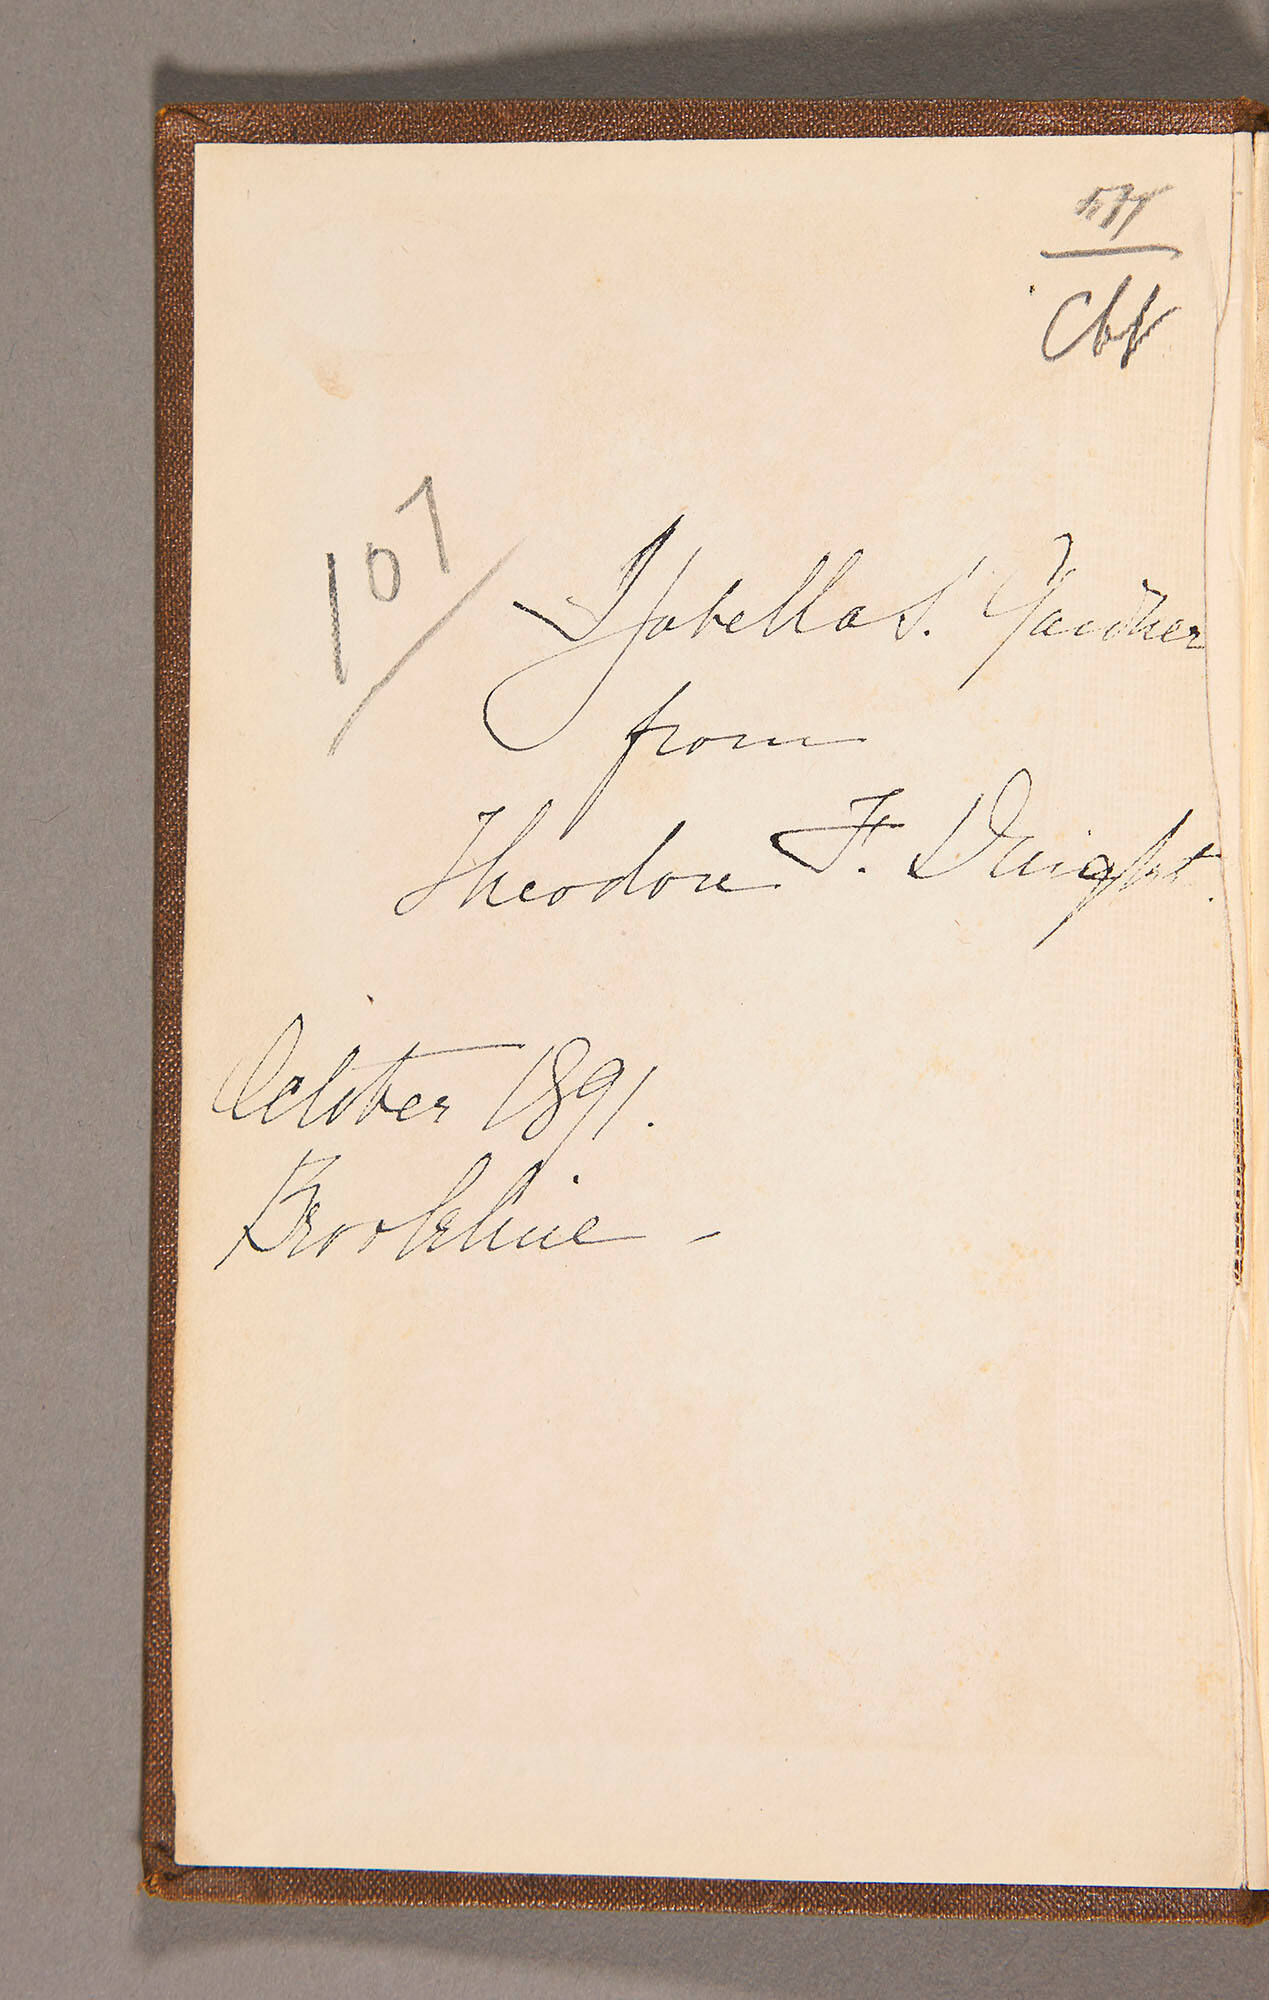 107
Isabella S. Gardner
from
Theodore F. Dwight.
October 1891.
Brookline -